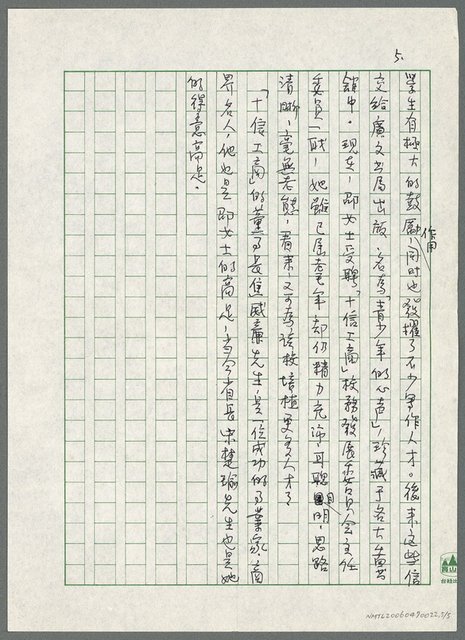 5.
學生有極大的鼓勵作用，同時也發掘了不少寫作人才。後來這些信
交給廣文書局出版，名為「青少年的心声」，珍藏于各大圖書
館中。現在，邵女士受聘「十信工商」校務發展委員会主任
委員一職，她雖已屆耄年，却仍精力充沛，耳聰目明，思路
清晰，毫無老態，看來，又可為該校培植更多人才了。
「十信工商」的董事長焦威廉先生，是一位成功的事業家商
界名人，他也是邵女士的高足，当今省長宋楚瑜先生也是她
的得意高足。
NMTL20060490022,5/5